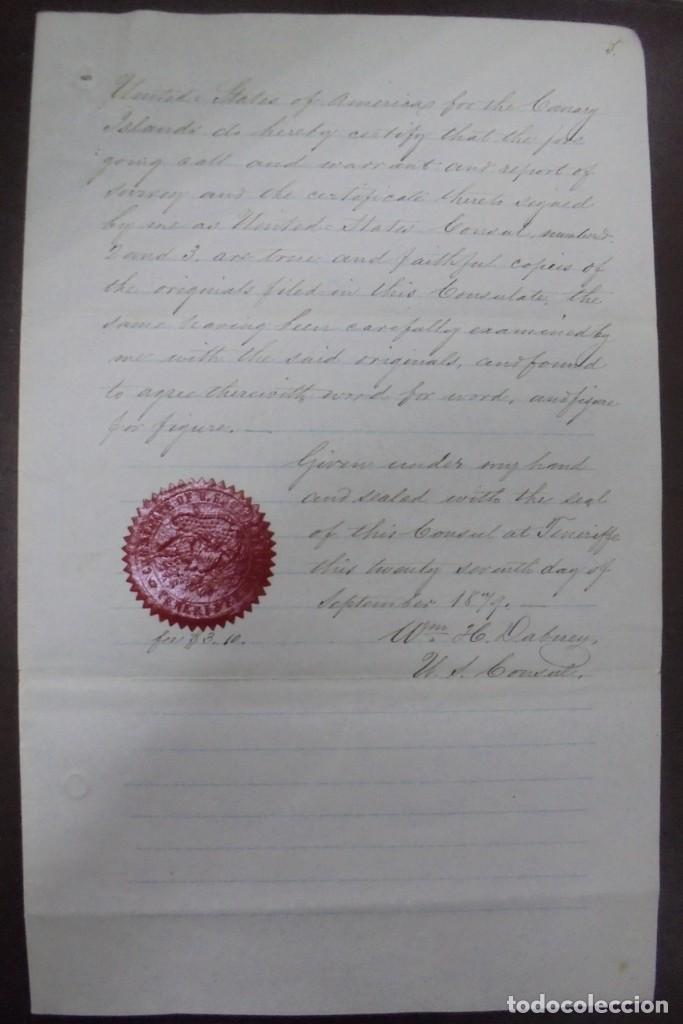 5.
United States of Americas for the Canary
Islands do hereby certify that the fore
going call and warrant and report of
survey and the certificate thereto signed
by me as United States Consul, numbered
2 and 3. are true and faithful copies of
the originals filed in this Consulate, the
same having been carefully examined by
me with the said originals, and found
to agree therewith word for word, and figure
for figure. —
Given under my hand
and sealed with the seal
of this Consul at Teneriffe
this twenty seventh day of
September 1879. —
Wm. H. Dabney,
U. S. Consul.
CONSULATE OF U.S.
TENERIFFE
fee $3.10.
todocoleccion